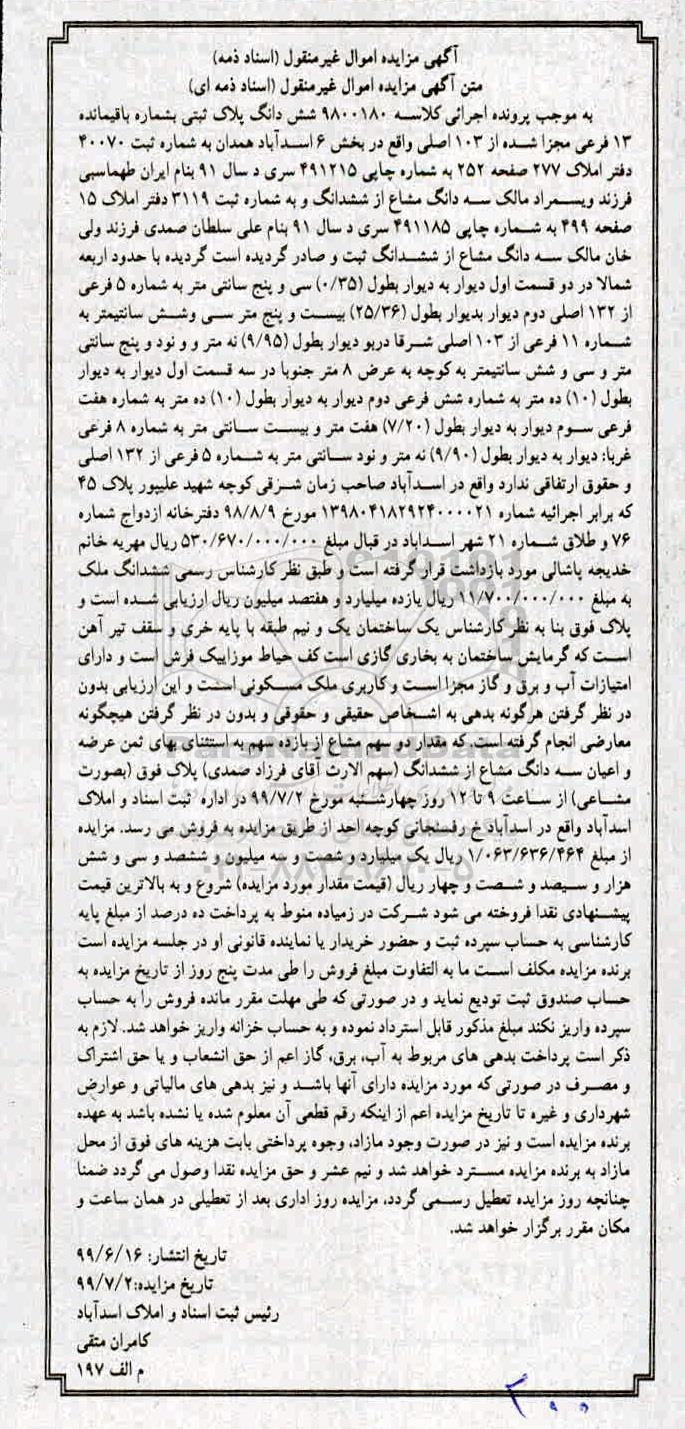 آگهی مزایده اموال غیرمنقول (اسناد ذمه)
متن آگهی مزایده اموال غیرمنقول (اسناد ذمه ای)
به موجب پرونده اجرائی کلاسه ۹۸۰۰۱۸۰ شش دانگ پلاک ثبتی بشماره باقیمانده
۱۳ فرعی مجزا شده از ۱۰۳ اصلی واقع در بخش ۶ اسدآباد همدان به شماره ثبت ۴۰۰۷۰
دفتر املاک ۲۷۷ صفحه ۲۵۲ به شماره چاپی ۴۹۱۲۱۵ سری د سال ۹۱ بنام ایران طهماسبی
فرزند ویسمراد مالک سه دانگ مشاع از ششدانگ و به شماره ثبت ۳۱۱۹ دفتر املاک ۱۵
صفحه ۴۹۹ به شماره چاپی ۴۹۱۱۸۵ سری د سال ۹۱ بنام علی سلطان صمدی فرزند ولی
خان مالک سه دانگ مشاع از ششدانگ ثبت و صادر گردیده است گردیده با حدود اربعه
شمالا در دو قسمت اول دیوار به دیوار بطول (۰/۳۵) سی و پنج سانتی متر به شماره ۵ فرعی
از ۱۳۲ اصلی دوم دیوار بدیوار بطول (۲۵/۳۶) بیست و پنج متر سی وشش سانتیمتر به
شماره ۱۱ فرعی از ۱۰۳ اصلی شرقا دربو دیوار بطول (۹/۹۵) نه متر و و نود و پنج سانتی
متر و سی و شش سانتیمتر به کوچه به عرض ۸ متر جنوبا در سه قسمت اول دیوار به دیوار
بطول (۱۰) ده متر به شماره شش فرعی دوم دیوار به دیوار بطول (۱۰) ده متر به شماره هفت
فرعی سوم دیوار به دیوار بطول (۷/۲۰) هفت متر و بیست سانتی متر به شماره ۸ فرعی
غربا: دیوار به دیوار بطول (۹/۹۰) نه متر و نود سانتی متر به شماره ۵ فرعی از ۱۳۲ اصلی
و حقوق ارتفاقی ندارد واقع در اسدآباد صاحب زمان شرقی کوچه شهید علیپور پلاک ۴۵
که برابر اجرائیه شماره ۱۳۹۸۰۴۱۸۲۹۲۴۰۰۰۰۲۱ مورخ ۹۸/۸/۹ دفترخانه ازدواج شماره
۷۶ و طلاق شماره ۲۱ شهر اسداباد در قبال مبلغ ۵۳۰/۶۷۰/۰۰۰/۰۰۰ ریال مهریه خانم
خدیجه پاشائی مورد بازداشت قرار گرفته است و طبق نظر کارشناس رسمی ششدانگ ملک
به مبلغ ۱۱/۷۰۰/۰۰۰/۰۰۰ ریال یازده میلیارد و هفتصد میلیون ریال ارزیابی شده است و
پلاک فوق بنا به نظر کارشناس یک ساختمان یک و نیم طبقه با پایه خری و سقف تیر آهن
است که گرمایش ساختمان به بخاری گازی است کف حیاط موزاییک فرش است و دارای
امتیازات آب و برق و گاز مجزا است و کاربری ملک مسکونی است و این ارزیابی بدون
در نظر گرفتن هرگونه بدهی به اشخاص حقیقی و حقوقی و بدون در نظر گرفتن هیچگونه
معارضی انجام گرفته است که مقدار دو سهم مشاع از یازده سهم به استثنای بهای ثمن عرضه
و اعیان سه دانگ مشاع از ششدانگ (سهم الارث آقای فرزاد صمدی) پلاک فوق (بصورت
مشاعی) از ساعت ۹ تا ۱۲ روز چهارشنبه مورخ ۹۹/۷/۲ در اداره ثبت اسناد و املاک
اسدآباد واقع در اسدآباد خ رفسنجانی کوچه احد از طریق مزایده به فروش می رسد. مزایده
از مبلغ ۱/۰۶۳/۶۳۶/۴۶۴ ریال یک میلیارد و شصت و سه میلیون و ششصد و سی و شش
هزار و سیصد و شصت و چهار ریال (قیمت مقدار مورد مزایده) شروع و به بالاترین قیمت
پیشنهادی نقدا فروخته می شود شرکت در زمیاده منوط به پرداخت ده درصد از مبلغ پایه
کارشناسی به حساب سپرده ثبت و حضور خریدار یا نماینده قانونی او در جلسه مزایده است
برنده مزایده مکلف است ما به التفاوت مبلغ فروش را طی مدت پنج روز از تاریخ مزایده به
حساب صندوق ثبت تودیع نماید و در صورتی که طی مهلت مقرر مانده فروش را به حساب
سپرده واریز نکند مبلغ مذکور قابل استرداد نموده و به حساب خزانه واریز خواهد شد. لازم به
ذکر است پرداخت بدهی های مربوط به آب، برق، گاز اعم از حق انشعاب و یا حق اشتراک
و مصرف در صورتی که مورد مزایده دارای آنها باشد و نیز بدهی های مالیاتی و عوارض
شهرداری و غیره تا تاریخ مزایده اعم از اینکه رقم قطعی آن معلوم شده یا نشده باشد به عهده
برنده مزایده است و نیز در صورت وجود مازاد، وجوه پرداختی بابت هزینه های فوق از محل
مازاد به برنده مزایده مسترد خواهد شد و نیم عشر و حق مزایده نقدا وصول می گردد ضمنا
چنانچه روز مزایده تعطیل رسمی گردد، مزایده روز اداری بعد از تعطیلی در همان ساعت و
مکان مقرر برگزار خواهد شد.
تاریخ انتشار: ۹۹/۶/۱۶
تاریخ مزایده:۹۹/۷/۲
رئیس ثبت اسناد و املاک اسدآباد
کامران متقی
م الف ۱۹۷